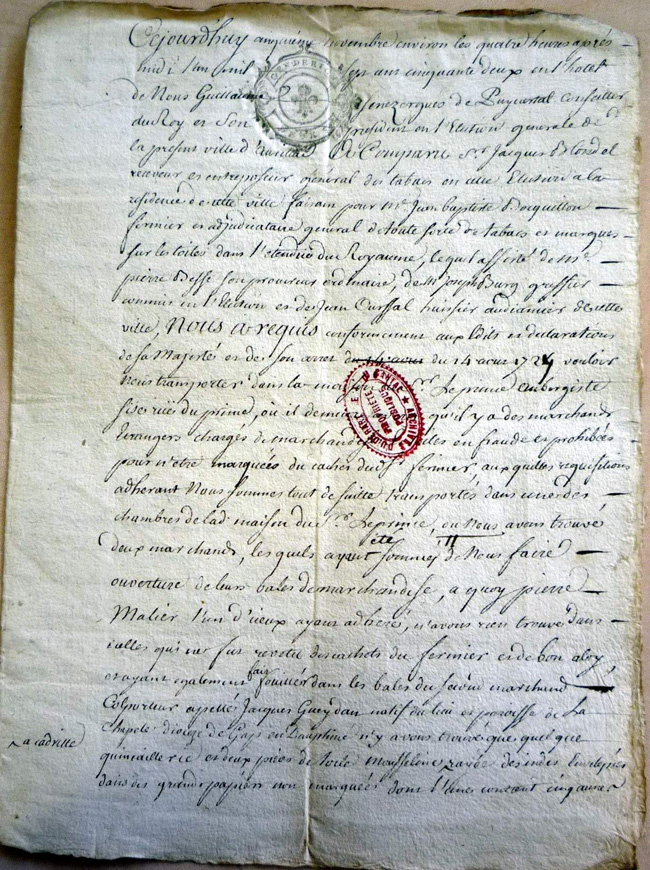 Cejourdhuy cinquiéme novembre environ les quatre heures après
midi l'an mil sept cens cinquante deux en l'hotel
de Nous Guillaume de Senezergues de Puyvertal Conseiller
du Roy et son president en l'Election generale de
la presens ville d'aurillac A Comparu Sr Jacques Blondel
receveur et entreposeur general des tabacs en cette Election a la
residence de cette ville faisant pour Me Jean baptiste Bocquillon
fermier et adjudicataire general de toute sorte de tabacs et marques
sur les toiles dans l'etendüe du Royaume, lequel assisté de Me
pierre Besse son procureur ordinaire, de Mr Joseph Burg greffier
commis en l'Election et de Jean Cussal huissier audiancier de cette
ville, Nous a requis conformement aux Edits et declarations
de sa Majesté et de son arret du 14 aout du 14 aout 172 vouloir
nous transporter dans la maison du Sr Leprince aubergiste
size rüe du prince, ou il demeure qu'il y a des marchands
Etrangers chargés de marchandises en fraude et prohibées
pour n'etre marquées du cachet du Sr fermier, aux quelles requisitions
adherant Nous sommes tout de suitte transportés dans une des
chambres de lad maison du Sr Leprince, ou Nous avons trouvé
deux marchands, les quels ayant été sommés de Nous faire
ouverture de leurs bales de marchandise, a quoy pierre
Malier l'un d'iceux ayant adheré, n'avons rien trouvé dans
icelles qui ne fut revetu des cachets du fermier et de bon aloy,
et ayant egalement fait fouiller dans les bales du second marchand
Colporteur appellé Jacques Gueydan natif du lieu et paroisse de La
Chapele dioceze de Gap en Dauphiné n'y avons trouvé que quelque
quincaillerie et deux pieces de toile mousseline des indes Envelopées
dans des grands papiers non marquées dont l'Une contient cinq aunes
ARCHIVES
PROPRIÉTÉ PUBLIQUE